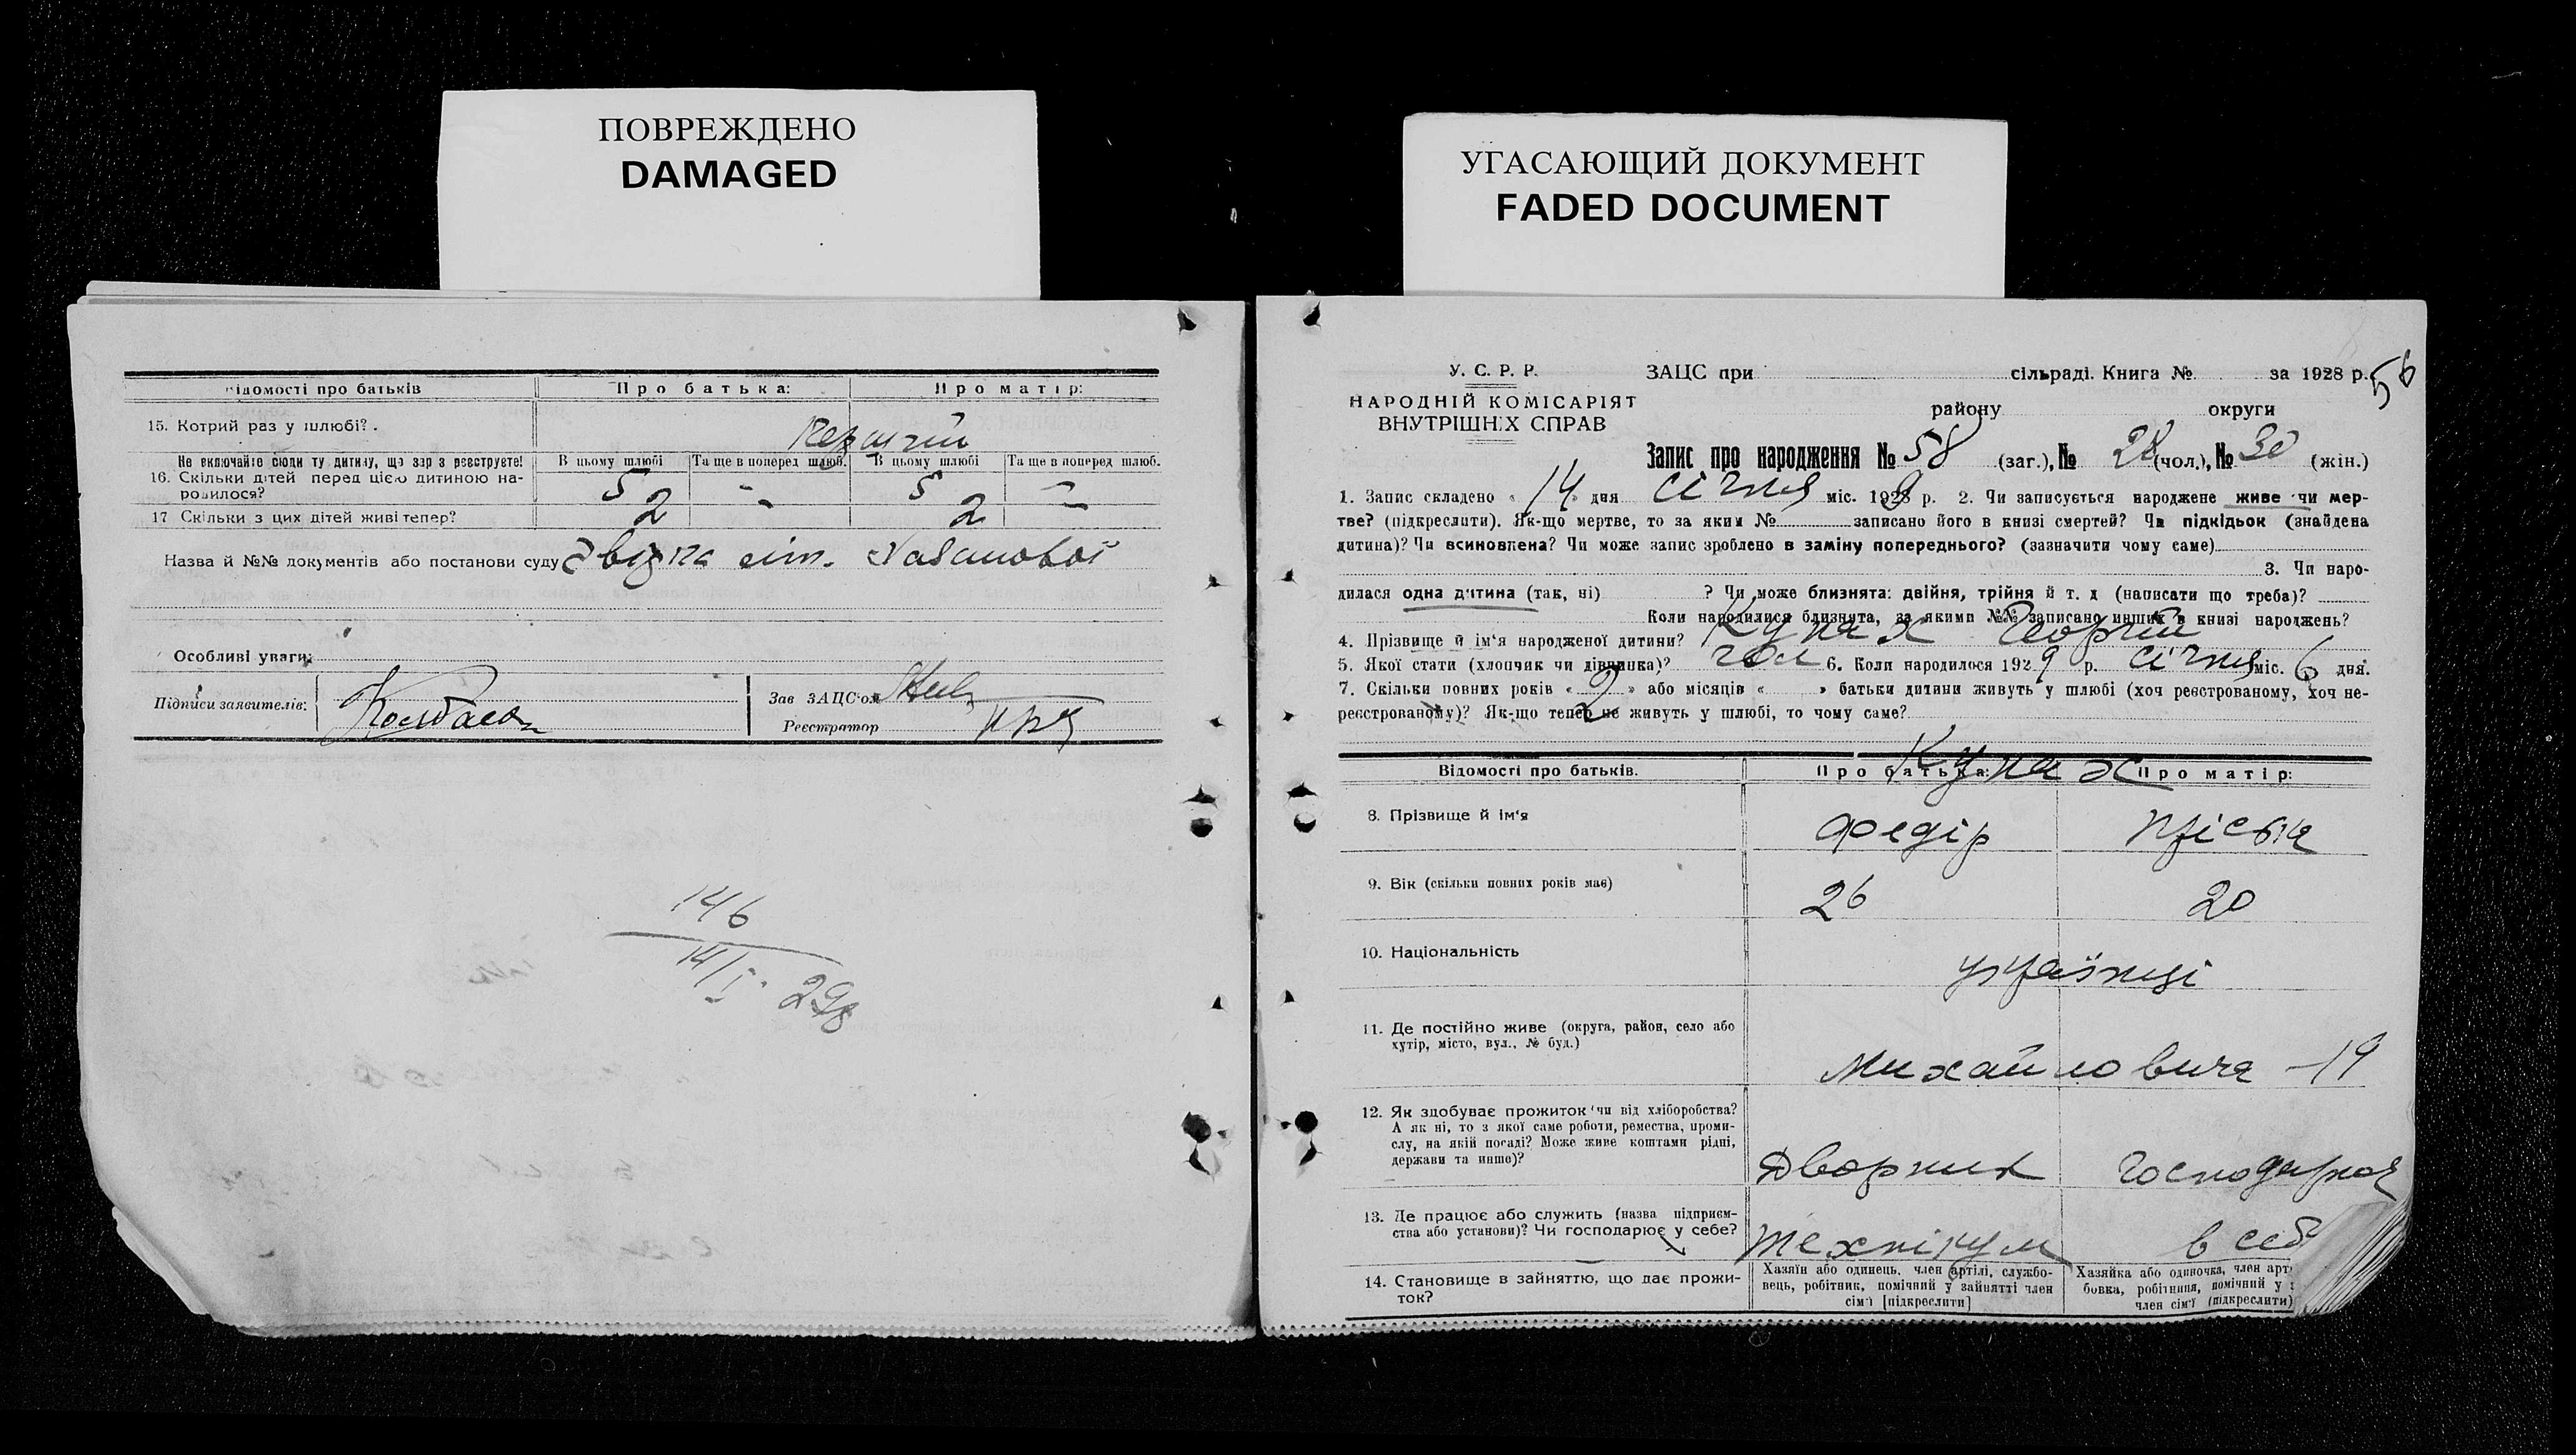 ПОВРЕЖДЕНО
DAMAGED
УГАСАЮЩИЙ ДОКУМЕНТ
FADED DOCUMENT
відомості про батьків
Про батька:
Про матір:
15. Котрий раз у шлюбі?.
Не включайте сюди ту дитину, що зар з реєструєте!
В цьому шлюбі
Та ще в поперед шлюб.
В цьому шлюбі
Та ще в поперед шлюб.
16. Скільки дітей перед цією дитиною на-
родилося?
5 - 5 -
17 Скільки з цих дітей живі тепер?
2 - 2 -
Назва й №№ документів або постанови суду
Особливі уваги:
Підписи заявителів:
Зав ЗАЦС'ом
Реєстратор
146
14/I 29
У. С. Р. Р.
НАРОДНІЙ КОМІСАРІЯТ
ВНУТРІШНІХ СПРАВ
ЗАЦС при сільраді. Книга № за 1928 р. 56
району округи
Запис про народження № 58 (заг.), № 28 (чол.), № 30 (жін.)
1. Запис складено « 14 » дня січня міс. 1929 р. 2. Чи записується народжене живе чи мер-
тве? (підкреслити). Як-що мертве, то за яким № записано його в книзі смертей? Чи підкідьок (знайдена
дитина)? Чи всиновлена? Чи може запис зроблено в заміну попереднього? (зазначити чому саме)
3. Чи наро-
дилася одна дитина (так, ні) ? Чи може близнята: двійня, трійня й т. д (написати що треба)?
Коли народилися близнята, за якими №№ записано инших в книзі народжень?
4. Прізвище й ім'я народженої дитини? Кунах Георгій
5. Якої стати (хлопчик чи дівчинка)? чол 6. Коли народилося 1929 р. січня міс. 6 дня.
7. Скільки повних років « 2 » або місяців « » батьки дитини живуть у шлюбі (хоч реєстрованому, хоч не-
реєстрованому)? Як-що тепер не живуть у шлюбі, то чому саме?
Кунах
Відомості про батьків.
Про батька:
Про матір:
8. Прізвище й ім'я
Федір
Пріська
9. Вік (скільки повних років має)
26
20
10. Національність
українці
11. Де постійно живе (округа, район, село або
хутір, місто, вул., № буд.)
Михайловича - 19
12. Як здобуває прожиток чи від хліборобства?
А як ні, то з якої саме роботи, ремества, проми-
слу, на якій посаді? Може живе коштами рідні,
держави та инше)?
Дворник
господарює
13. Де працює або служить (назва підприєм-
ства або установи)? Чи господарює у себе?
Технікум
в себ
14. Становище в зайняттю, що дає прожи-
ток?
Хазяїн або одинець, член артілі, службо-
вець, робітник, помічний у зайнятті член
сім'ї [підкреслити]
Хазяйка або одиночка, член арт
бовка, робітниця, помічний у
член сім'ї (підкреслити)